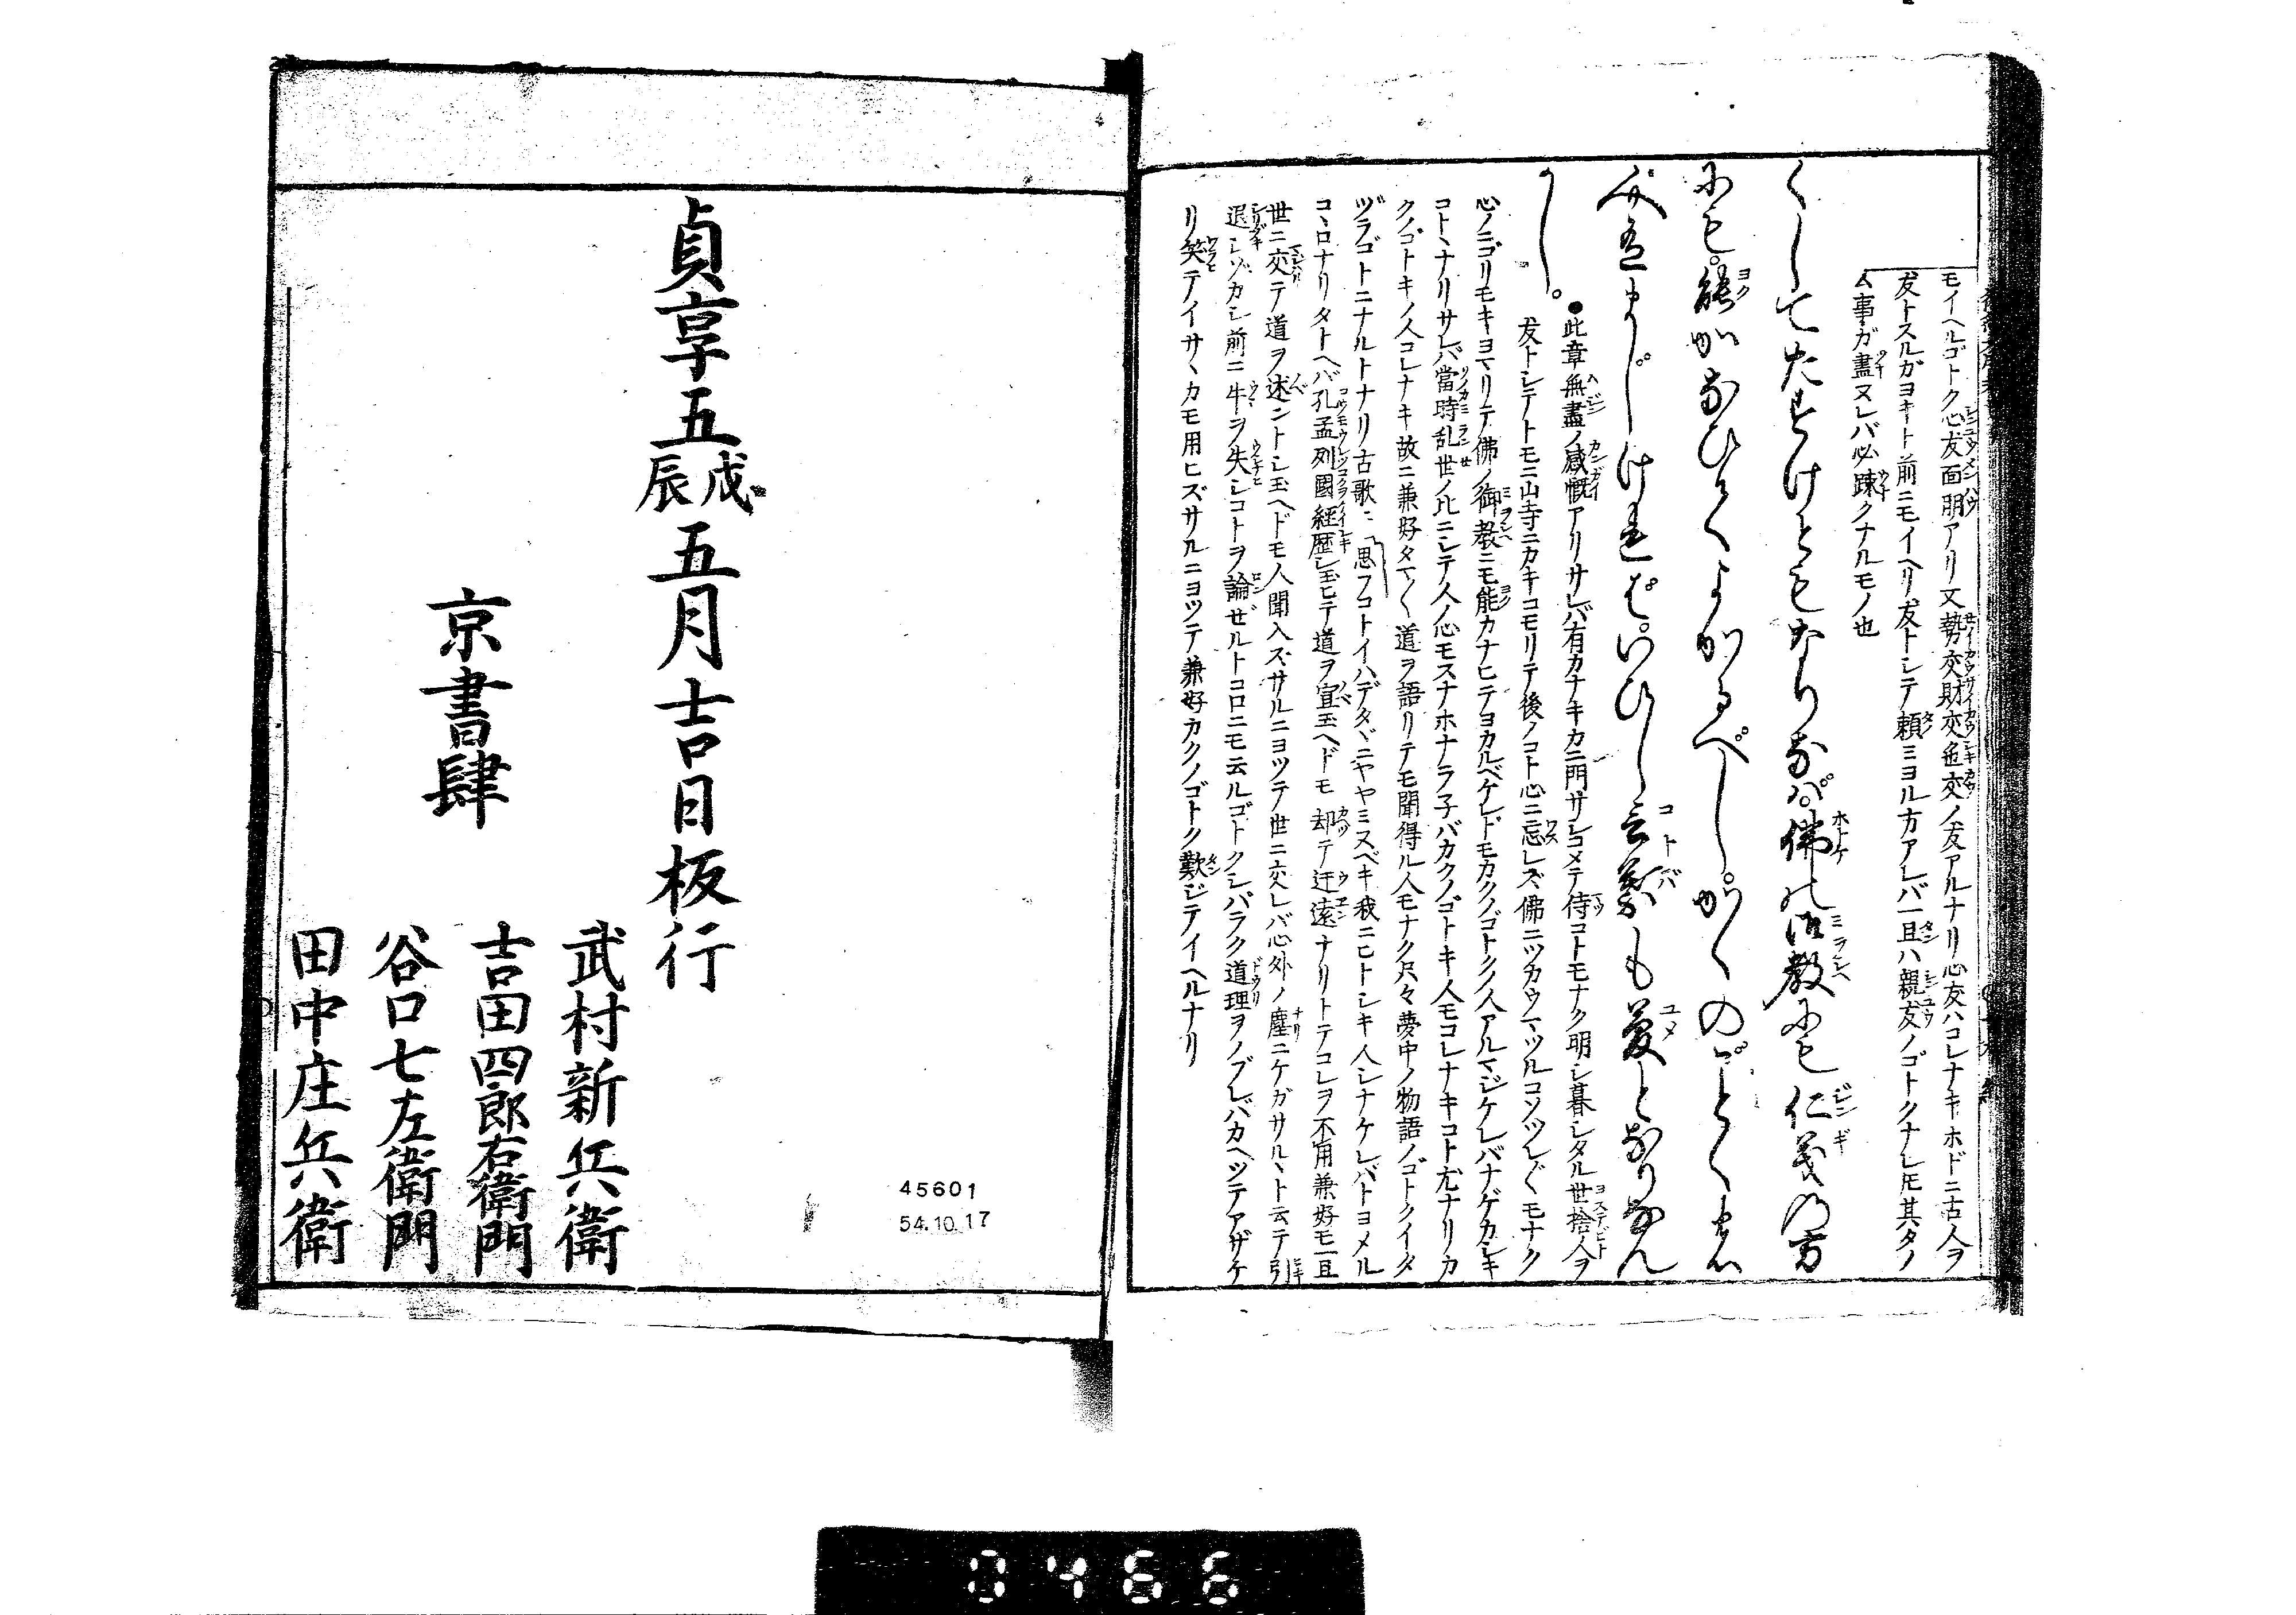 モイヘルゴトク心友面朋アリ又勢交財交色交ノ友アルナリ心友ハコレナキホドニ古人ヲ
友トスルガヨキト前ニモイヘリ友トシテ頼ミヨル方アレバ一旦ハ親友ノゴトクナレ𪜈其タノ
ム事ガ盡ヌレバ必疎クナルモノ也
くしてたすけともなりなば。佛の御教にも仁義の方
にも。能かなひてよかるべし。かくのごとくすむ
人まじければ。いひし言葉も夢となりなん
かし。
●此章無盡ノ感慨アリサレバ有カナキカニ門サシコメテ侍コトモナク明シ暮シタル世捨人ヲ
友トシテトモニ山寺ニカキコモリテ後ノコト心ニ忘レズ佛ニツカウマツルコソツレ〲モナク
心ノニゴリモキヨマリテ佛ノ御教ニモ能カナヒテヨカルベケレドモカクノゴトクノ人アルマジケレバナゲカシキ
コトヽナリサレバ當時乱世ノ比ニシテ人ノ心モスナホナラ子バカクノゴトキノ人モコレナキコト尤ナリカ
クノゴトキノ人コレナキ故ニ兼好タマ〱道ヲ語リテモ聞得ル人モナク只々夢中ノ物語ノゴトクイタ
ヅラゴトニナルトナリ古歌ニ思フコトイハデタヾニヤヤミヌベキ我ニヒトシキ人シナケレバトヨメル
コヽロナリタトヘバ孔孟列國經歴シ玉ヒテ道ヲ宣玉ヘドモ却テ迂遠ナリトテコレヲ不用兼好モ一旦
世ニ交テ道ヲ述ントシ玉ヘドモ人聞入ズサルニヨツテ世ニ交レバ心外ノ塵ニケガサルヽト云テ引
退シゾカシ前ニ牛ヲ失シコトヲ論ゼルトコロニモ云ルゴトクシバラク道理ヲノブレバカヘツテアザケ
リ笑テイサヽカモ用ヒズサルニヨツテ兼好カクノゴトク歎ジテイヘルナリ
貞享五戊辰五月吉日板行
京書肆
武村新兵衛
吉田四郎右衛門
谷口七左衛門
田中庄兵衛
45601
54.10.17
0466